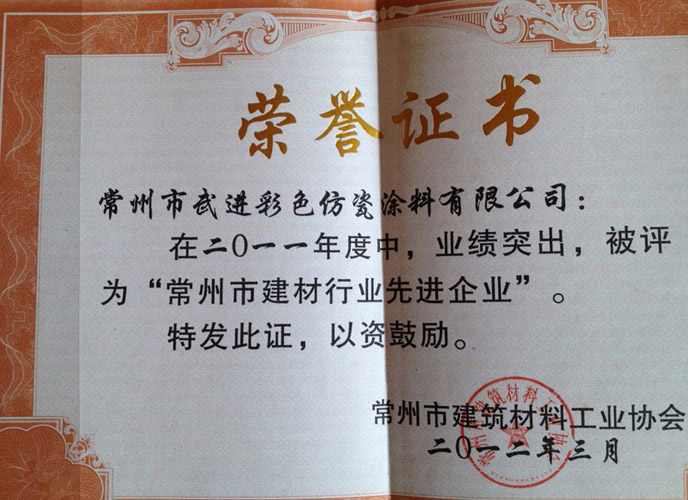 荣誉证书
常州市武进彩色仿瓷涂料有限公司：
在二〇一一年度中，业绩突出，被评
为“常州市建材行业先进企业”。
特发此证，以资鼓励。
常州市建筑材料工业协会
二〇一二年三月